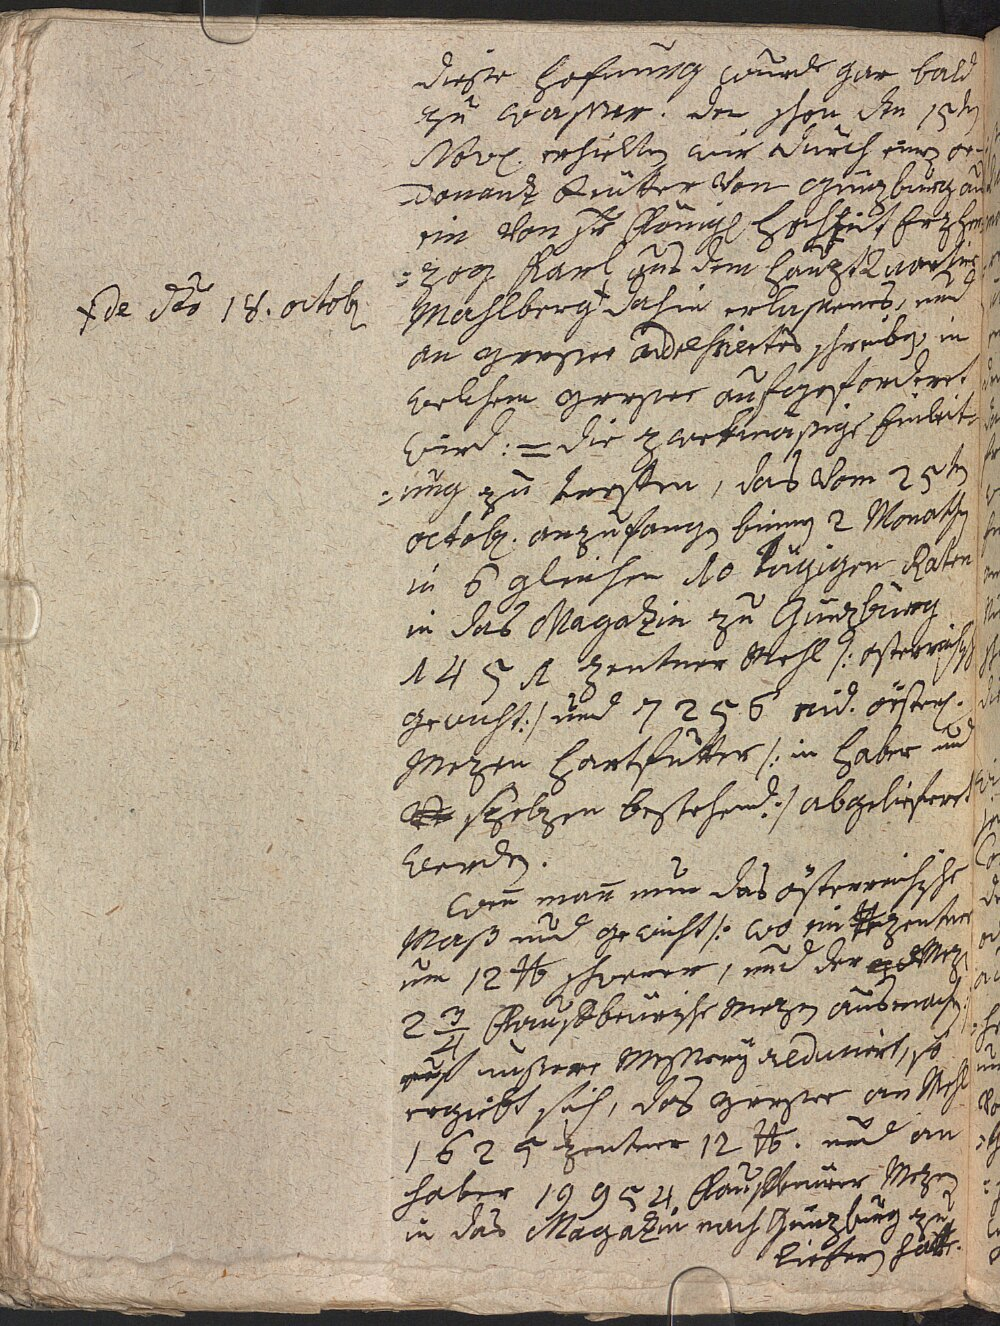 diese Hofnung wurde gar bald
zu wasser. den schon den 15ten
Nov. erhielten wir durch einen or-
=donanz Reütter von Günzburg aus
ein von Sr Königl Hochheit Erzher
=zog Karl aus dem Hauptquartier
x de dto 18. octob
Mahlberg x dahin erlassenes, und
an adressirtes schreiben, in
welchem aufgefordert
wird: = die zwekmäsige Einleit-
=ung zu treffen, das vom 25ten
octob. anzufangen binnen 2 Monathen
in 6 gleichen 10 tägigen Raten
in das Magazin zu Günzburg
1451 zentner Mehl /: österreichs
gewicht :/ und 7256 nid. österr.
Mezen Hartfutter /: in Haber und
bestehend :/ abgeliefert
werden.
Wen man nun das österreichische
Maß und gewicht /: wo ein zentner
um 12 ℔ schwerer, und der Mezen
2 3/4 Kaufbeürische Mezen ausmacht :/
auf unsere Messerey reducirt, so
ergiebt sich, das an Mehl
1625 zentner 12 ℔. und an
Haber 19954 Kaufbeurer Mezen
in das Magazin nach Günzburg zu
liefern hatte.